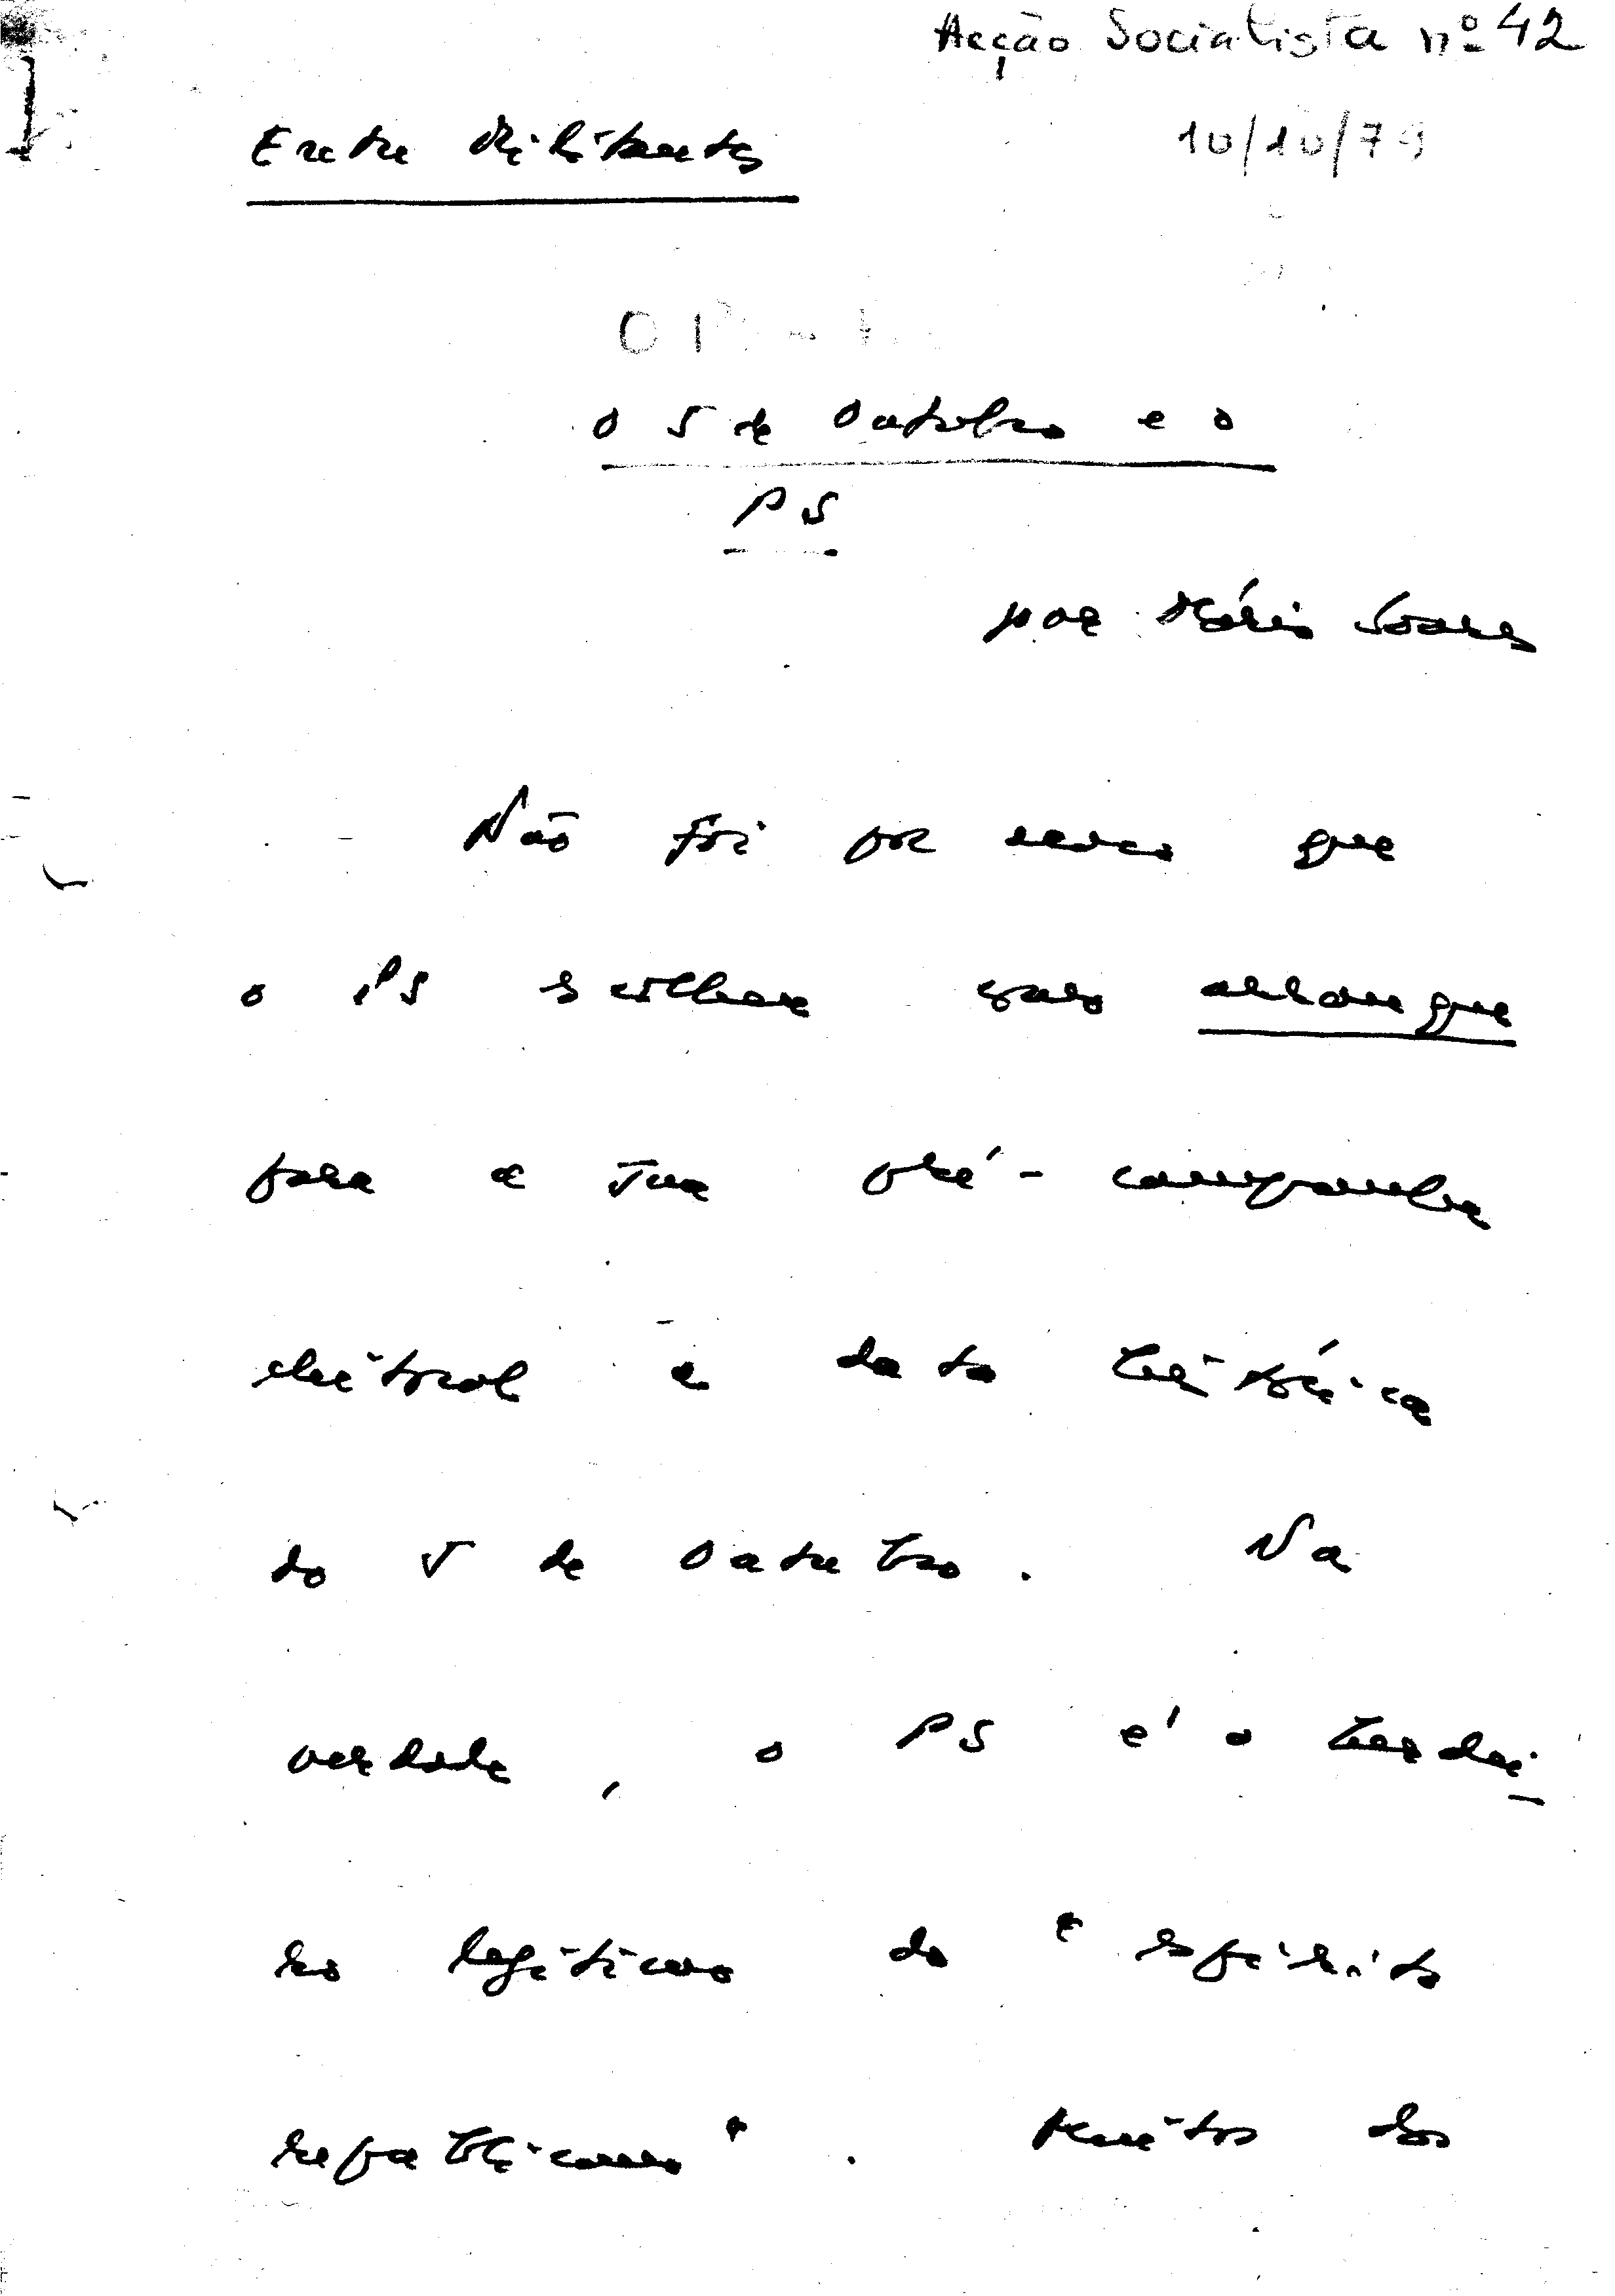 Acção Socialista nº 42
Entre Militantes
10/10/79
O 5 de Outubro e o
PS
por Mário Soares
Não foi por acaso que
o PS escolheu para arranque
para a sua pré-campanha
eleitoral a data histórica
do 5 de Outubro. Na
verdade, o PS é o herdei-
ro legítimo do "espírito
republicano". Muitos dos